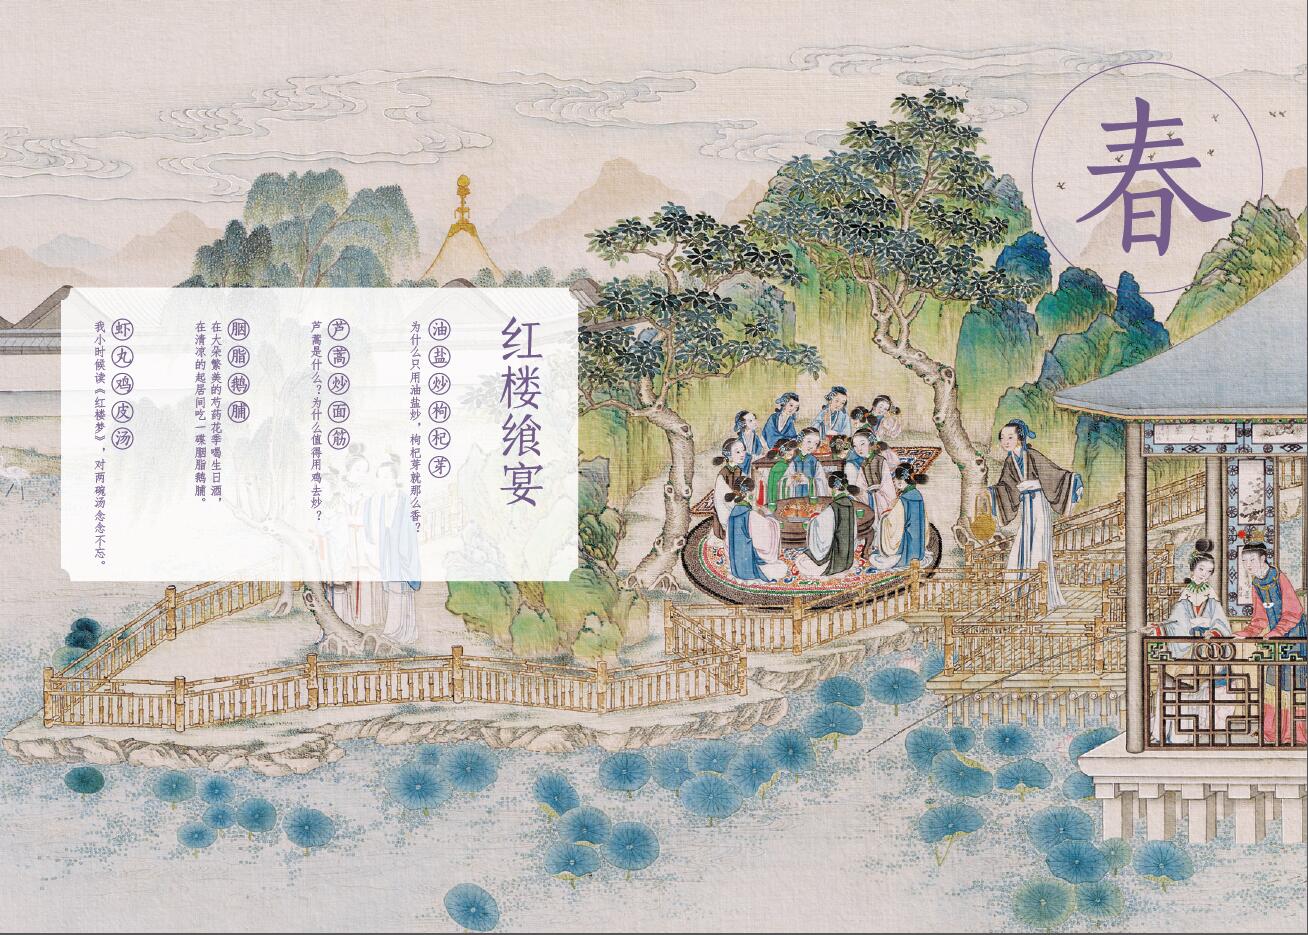 春
红楼飨宴
油盐炒枸杞芽
为什么只用油盐炒，枸杞芽就那么香？
芦蒿炒面筋
芦蒿是什么？为什么值得用鸡去炒？
胭脂鹅脯
在大朵繁美的芍药花季喝生日酒，
在清凉的起居间吃一碟胭脂鹅脯。
虾丸鸡皮汤
我小时候读《红楼梦》，对两碗汤念念不忘。